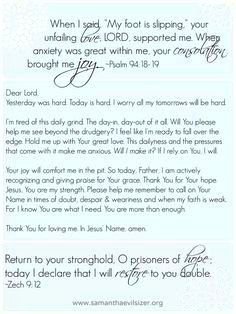 When I said, "My foot is slipping," your
unfailing love, LORD, supported me. When
anxiety was great within me, your consolation
brought me joy. ~Psalm 94:18-19
Dear Lord,
Yesterday was hard. Today is hard. I worry all my tomorrows will be hard.
I'm tired of this daily grind. The day-in, day-out of it all. Will You please
help me see beyond the drudgery? I feel like I'm ready to fall over the
edge. Hold me up with Your great love. This dailyness and the pressures
that come with it make me anxious. Will I make it? If I rely on You, I will.
Your joy will comfort me in the pit. So today, Father, I am actively
recognizing and giving praise for Your grace. Thank You for Your hope
Jesus. You are my strength. Please help me remember to call on Your
Name in times of doubt, despair & weariness and when my faith is weak.
For I know You are what I need. You are more than enough.
Thank You for loving me. In Jesus' Name, amen.
Return to your stronghold, O prisoners of hope;
today I declare that I will restore to you double.
~Zech 9:12
www.samanthaevilsizer.org